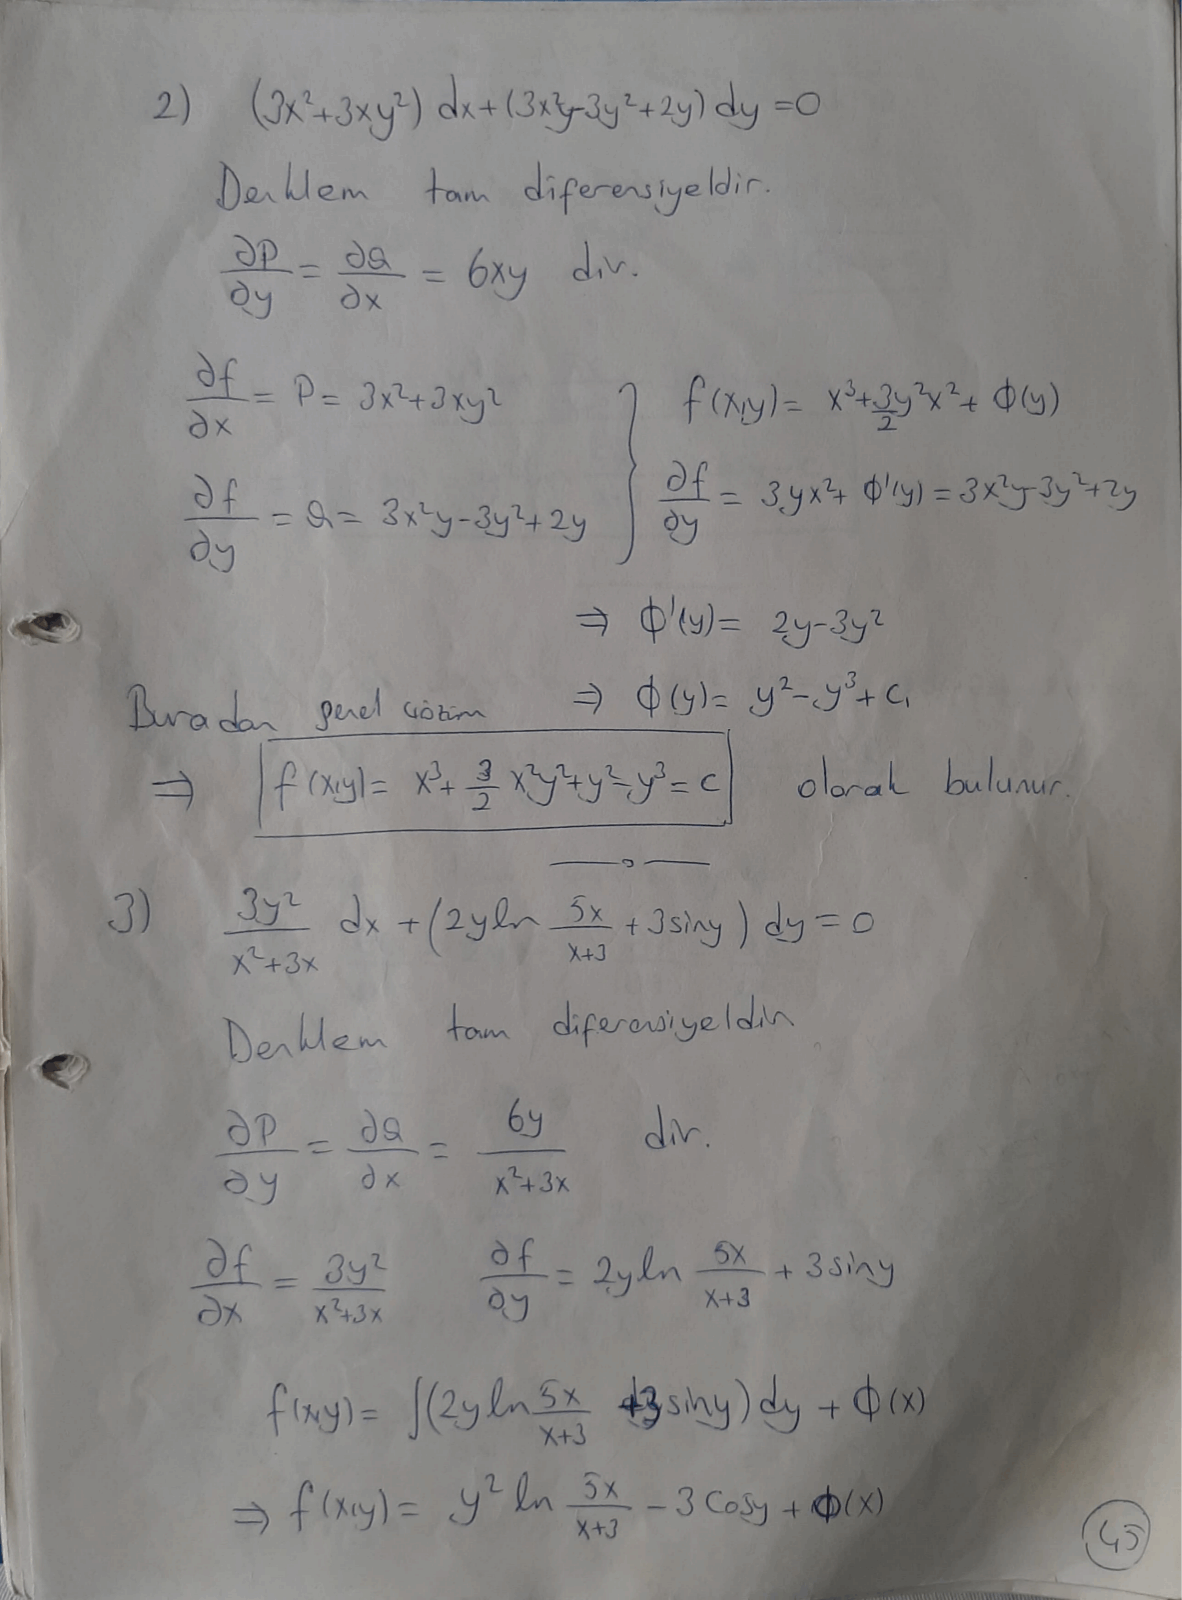 2) (3x²+3xy²) dx+(3x²y-3y²+2y) dy =0
Denklem tam diferensiyeldir.
∂P/∂y = ∂Q/∂x = 6xy dir.
∂f/∂x = P= 3x²+3xy² } f(x,y)= x³+3/2 y²x²+ Φ(y)
∂f/∂y = Q= 3x²y-3y²+2y } ∂f/∂y = 3yx²+ Φ'(y) = 3x²y-3y²+2y
⇒ Φ'(y)= 2y-3y²
⇒ Φ(y)= y²-y³+c₁
Buradan genel çözüm
⇒ f(x,y)= x³+ 3/2 x²y²+y²-y³=c olarak bulunur.
3) 3y²/(x²+3x) dx +(2yln 5x/(x+3) + 3siny) dy = 0
Denklem tam diferensiyeldir
∂P/∂y = ∂Q/∂x = 6y/(x²+3x) dir.
∂f/∂x = 3y²/(x²+3x) ∂f/∂y = 2yln 5x/(x+3) + 3siny
f(x,y)= ∫(2yln 5x/(x+3) +3siny) dy + Φ(x)
⇒ f(x,y)= y² ln 5x/(x+3) - 3 Cosy + Φ(x)
45